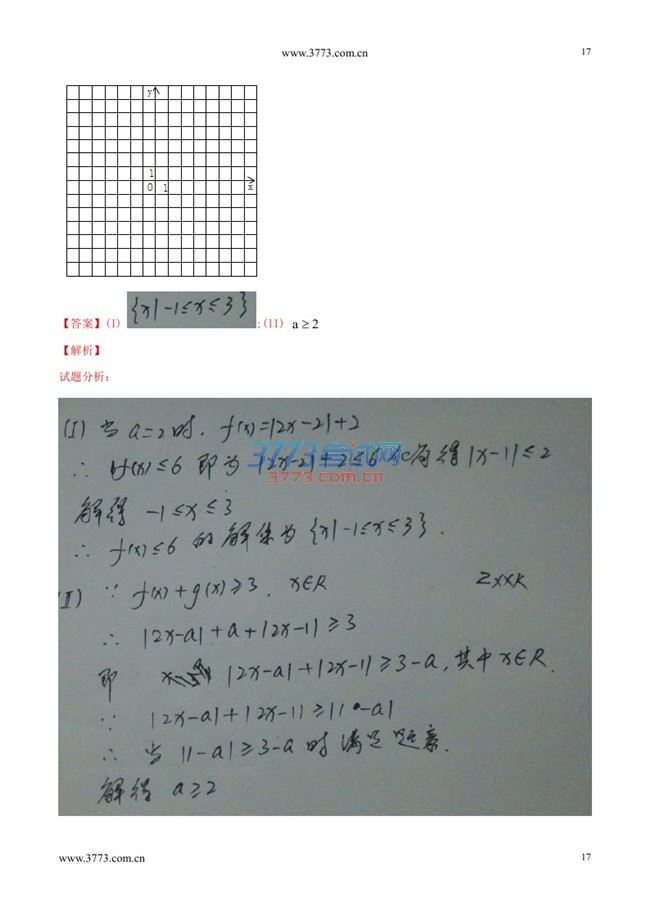 www.3773.com.cn 17
y
1
0 1 x
【答案】(I) {x|-1≤x≤3} ;(II) a ≥ 2
【解析】
试题分析:
(I) 当 a=2时. f(x)=|2x-2|+2
∴ f(x)≤6 即为 |2x-2|+2≤6 得 |x-1|≤2
3773考试网
3773.com.cn
解得 -1≤x≤3
∴ f(x)≤6 的解集为 {x|-1≤x≤3}.
(II) ∵ f(x)+g(x)≥3. x∈R zxxk
∴ |2x-a|+a+|2x-1|≥3
即 |2x-a|+|2x-1|≥3-a, 其中x∈R.
∵ |2x-a|+|2x-1|≥|1-a|
∴ 当 |1-a|≥3-a 时满足题意.
解得 a≥2
www.3773.com.cn 17